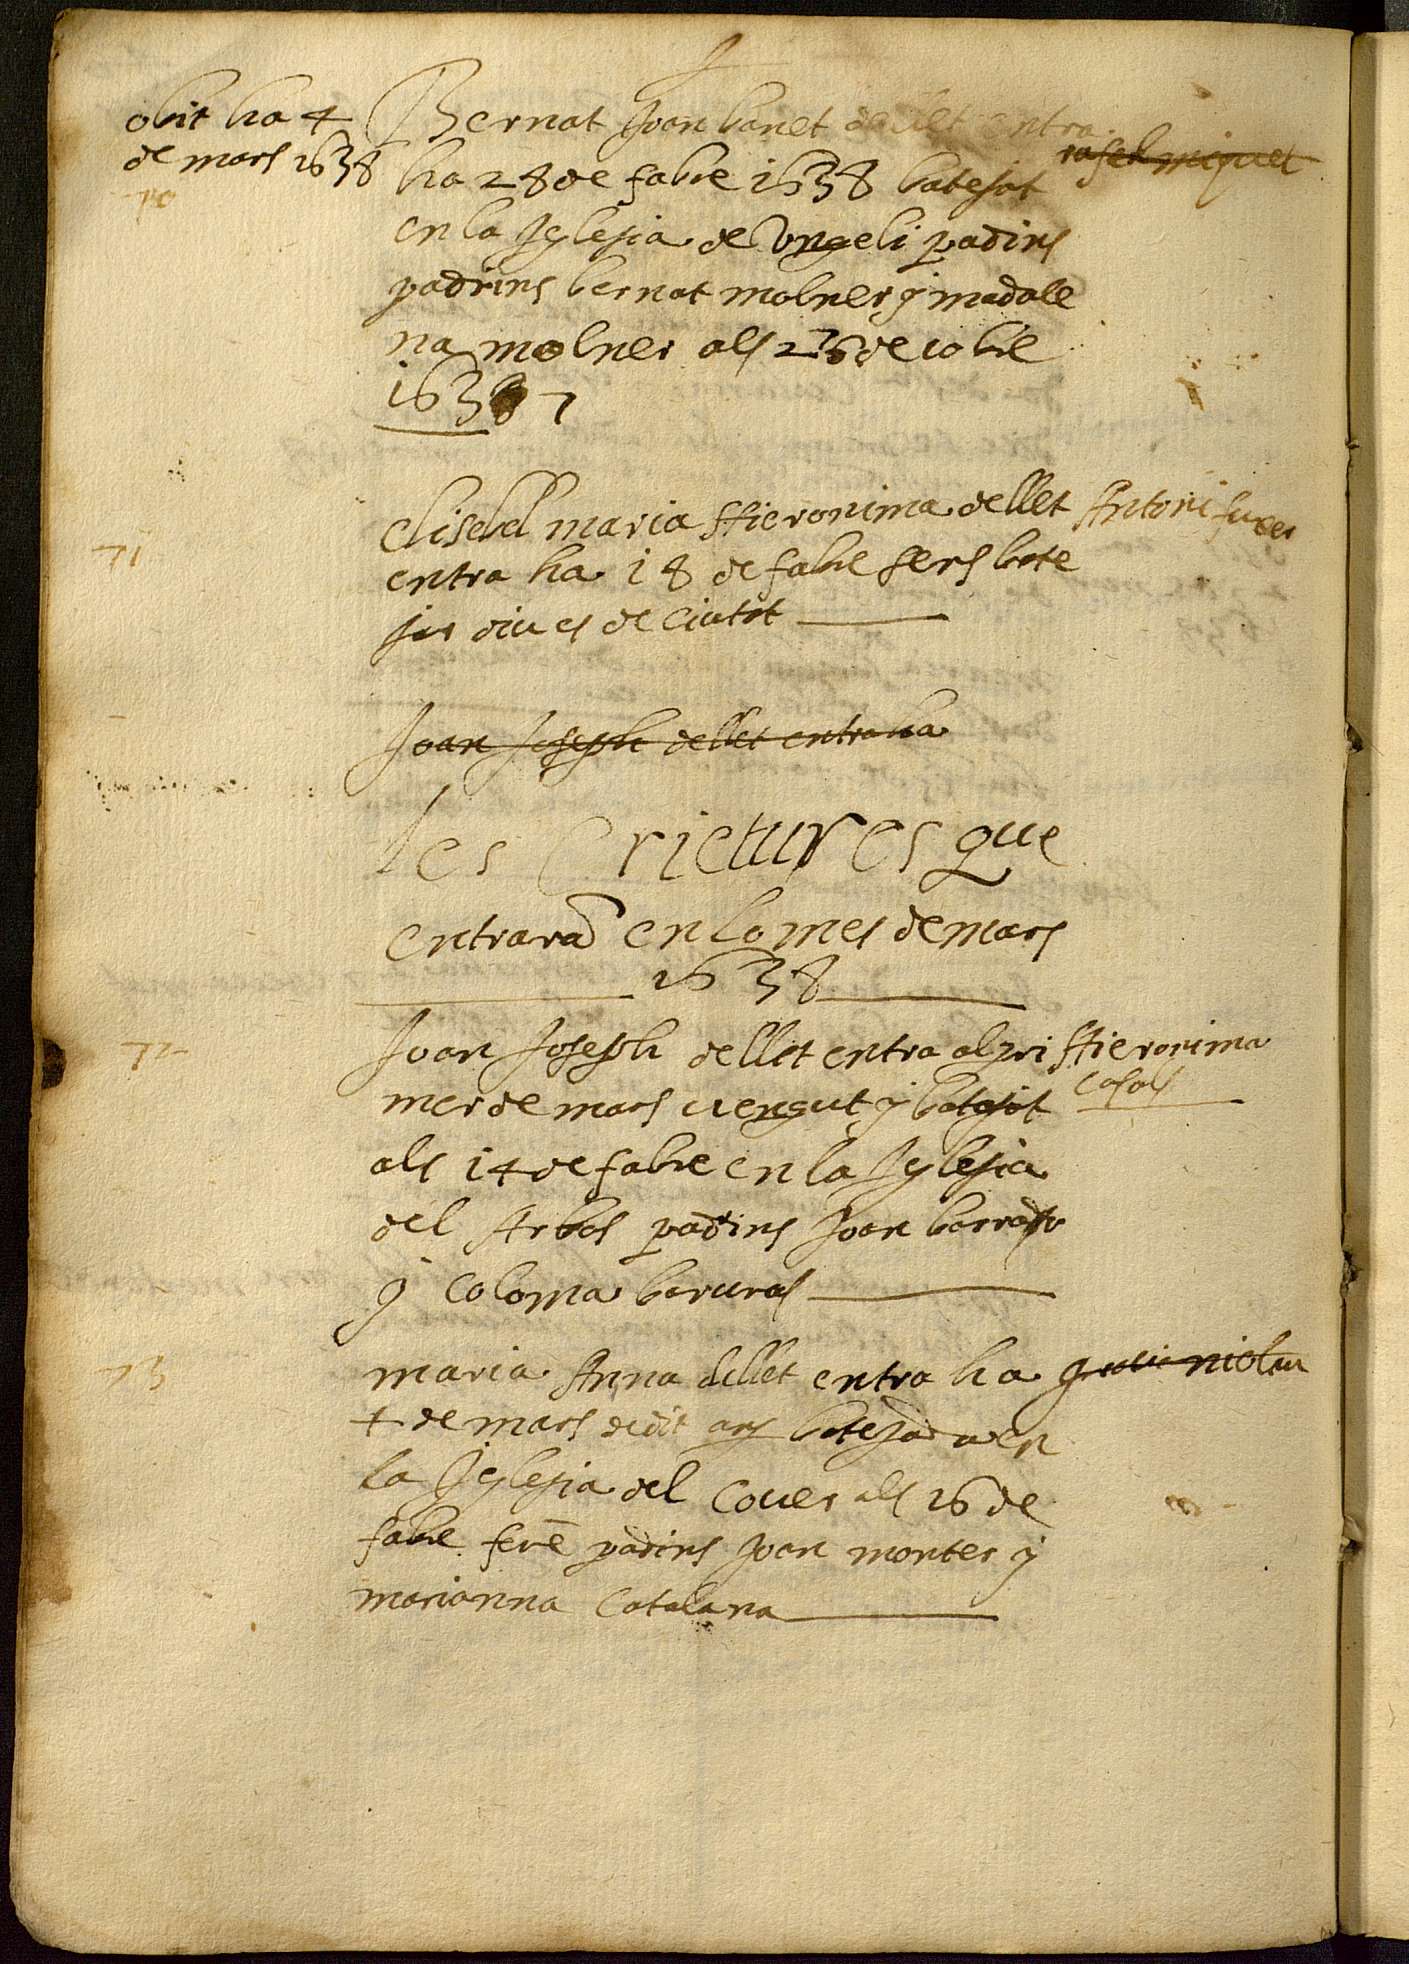 obit ha 4
de mars 1638
70
Bernat Joan banet de llet entra
rafel miquel
ha 28 de fabre 1638 batejat
en la Iglesia de Vngeli padins
padrins bernat molner y madale
na molner als 26 de 10bre
1637
71
Elisabel maria Hieronima de llet
Antoni
entra ha 18 de fabre sens bate
jar diues de Ciutat
Joan Joseph de llet entra ha
les Crietures que
entrara en lo mes de mars
1638
72
Joan Joseph de llet entra al pri
Hieronima
casals
mer de mars vengut y batejat
als 14 de fabre en la Iglesia
del Arbos padins Joan
y Coloma
73
maria Anna de llet entra ha
nicolau
4 de mars dedit any batejada en
la Iglesia del Couer als 26 de
fabre fere padins Joan monter y
marianna Catalana